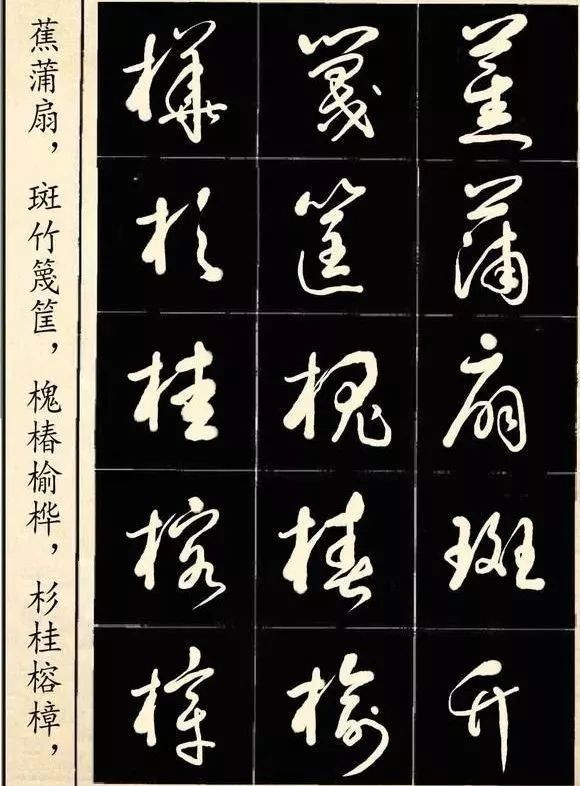 蕉蒲扇斑竹
篾筐槐椿榆
樺杉桂榕樟
蕉蒲扇，斑竹篾筐，槐椿榆桦，杉桂榕樟，